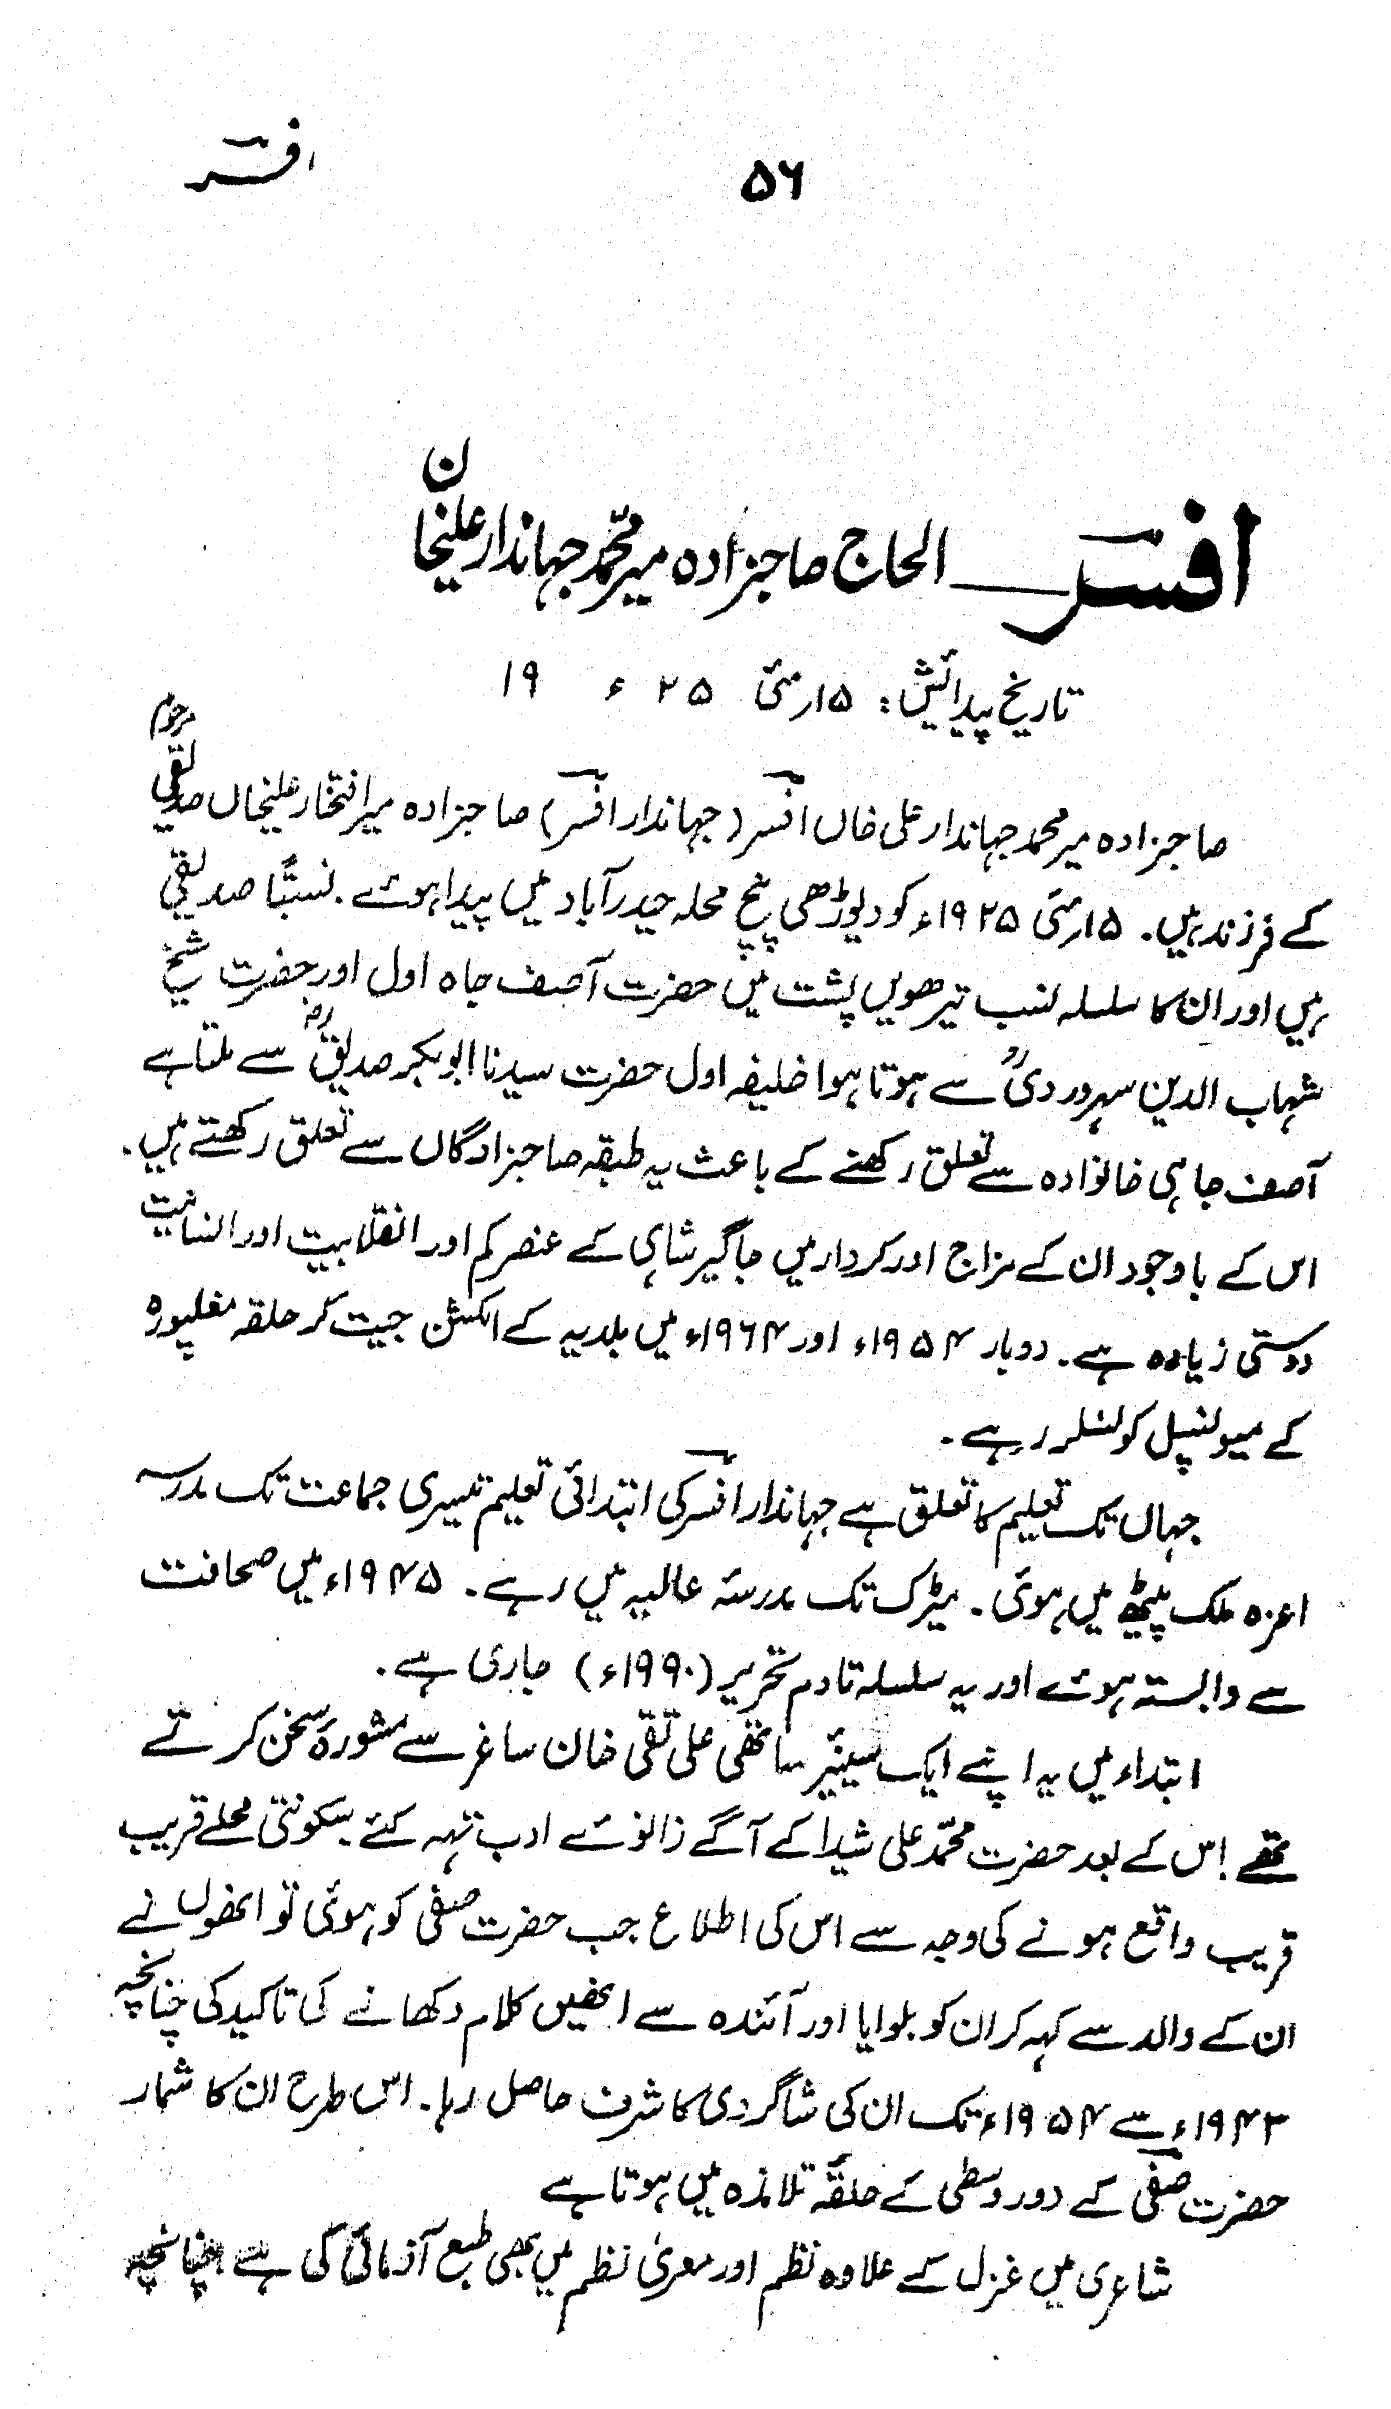 ۵۶ افسر
افسر — الحاج صاحبزادہ میر محمد جہاندار علیخان
تاریخ پیدائش: ۱۵ مئی ۲۵ ء ۱۹
صاحبزادہ میر محمد جہاندار علی خاں افسر (جہاندار افسر) صاحبزادہ میر افتخار علیخاں صدیقی مرحوم
کے فرزند ہیں۔ ۱۵ مئی ۱۹۲۵ء کو دیوڑھی پنچ محلہ حیدرآباد میں پیدا ہوئے۔ نسبتًا صدیقی
ہیں اور ان کا سلسلہ نسب تیرھویں پشت میں حضرت آصف جاہ اول اور حضرت شیخ
شہاب الدین سہروردیؒ سے ہوتا ہوا خلیفہ اول حضرت سیدنا ابوبکر صدیقؓ سے ملتا ہے
آصف جاہی خانوادہ سے تعلق رکھنے کے باعث یہ طبقہ صاحبزادگاں سے تعلق رکھتے ہیں۔
اس کے باوجود ان کے مزاج اور کردار میں جاگیر شاہی کے عنصر کم اور انقلابیت اور انسانیت
دوستی زیادہ ہے۔ دوبار ۱۹۵۴ء اور ۱۹۶۴ء میں بلدیہ کے الکشن جیت کر حلقہ مغلپورہ
کے میونسپل کونسلر رہے۔
جہاں تک تعلیم کا تعلق ہے جہاندار افسر کی ابتدائی تعلیم تیسری جماعت تک مدرسہ
اعزہ ملک پیٹھ میں ہوئی۔ میٹرک تک مدرسئہ عالیہ میں رہے۔ ۱۹۴۵ء میں صحافت
سے وابستہ ہوئے اور یہ سلسلہ تادم تحریر (۱۹۹۰ء) جاری ہے۔
ابتداء میں یہ اپنے ایک سینیئر ساتھی علی تقی خان ساغر سے مشورۂ سخن کرتے
تھے اس کے بعد حضرت محمّد علی شیدا کے آگے زانوئے ادب تہہ کئے سکونتی محلے قریب
قریب واقع ہونے کی وجہ سے اس کی اطلاع جب حضرت صفی کو ہوئی تو انھوں نے
ان کے والد سے کہہ کر ان کو بلوایا اور آئندہ سے انھیں کلام دکھانے کی تاکید کی چنانچہ
۱۹۴۳ء سے ۱۹۵۴ء تک ان کی شاگردی کا شرف حاصل رہا۔ اس طرح ان کا شمار
حضرت صفی کے دور وسطی کے حلقۂ تلامذہ میں ہوتا ہے
شاعری میں غزل کے علاوہ نظم اور معریٰ نظم میں بھی طبع آزمائی کی ہے چنانچہ